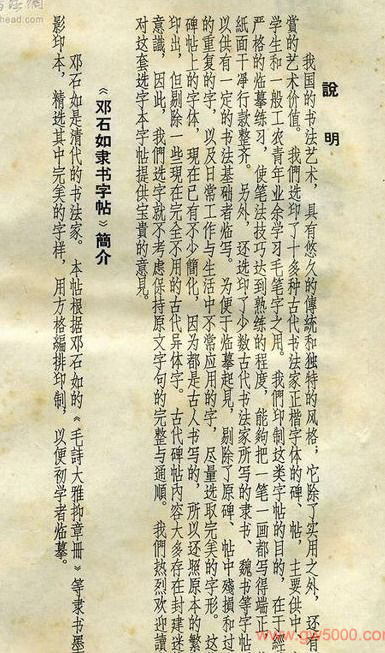 說明
我国的书法艺术，具有悠久的傳統和独特的风格；它除了实用之外，还有
賞的艺术价值。我們选印了十多种古代书法家正楷字体的碑、帖，主要供中
学生和一般工农青年业余学习毛笔字之用。我們印制这类字帖的目的，在于經
严格的临摹练习，使笔法技巧达到熟练的程度，能夠把一笔一画都写得端正
紙面干凈行款整齐。另外，还选印了少数古代书法家所写的隶书、魏书等字帖
以供有一定的书法基础者临写。为便于临摹起見，剔除了原碑、帖中殘損和过
的重复的字，以及日常工作与生活中不常应用的字，尽量选取完美的字形。这
碑帖上的字体，現在已有不少簡化，因为都是古人书写的，所以还照原本的繁
印出，但剔除一些現在完全不用的古代异体字。古代碑帖內容大多存在封建迷
意識，因此，我們选字就不考虑保持原文字句的完整与通順。我們热烈欢迎讀
对这套选字本字帖提供宝貴的意見。
《邓石如隶书字帖》簡介
邓石如是清代的书法家。本帖根据邓石如的《毛詩大雅抑章册》等隶书墨
影印本，精选其中完美的字样，用方格編排印制，以便初学者临摹。
www.gw5000.com